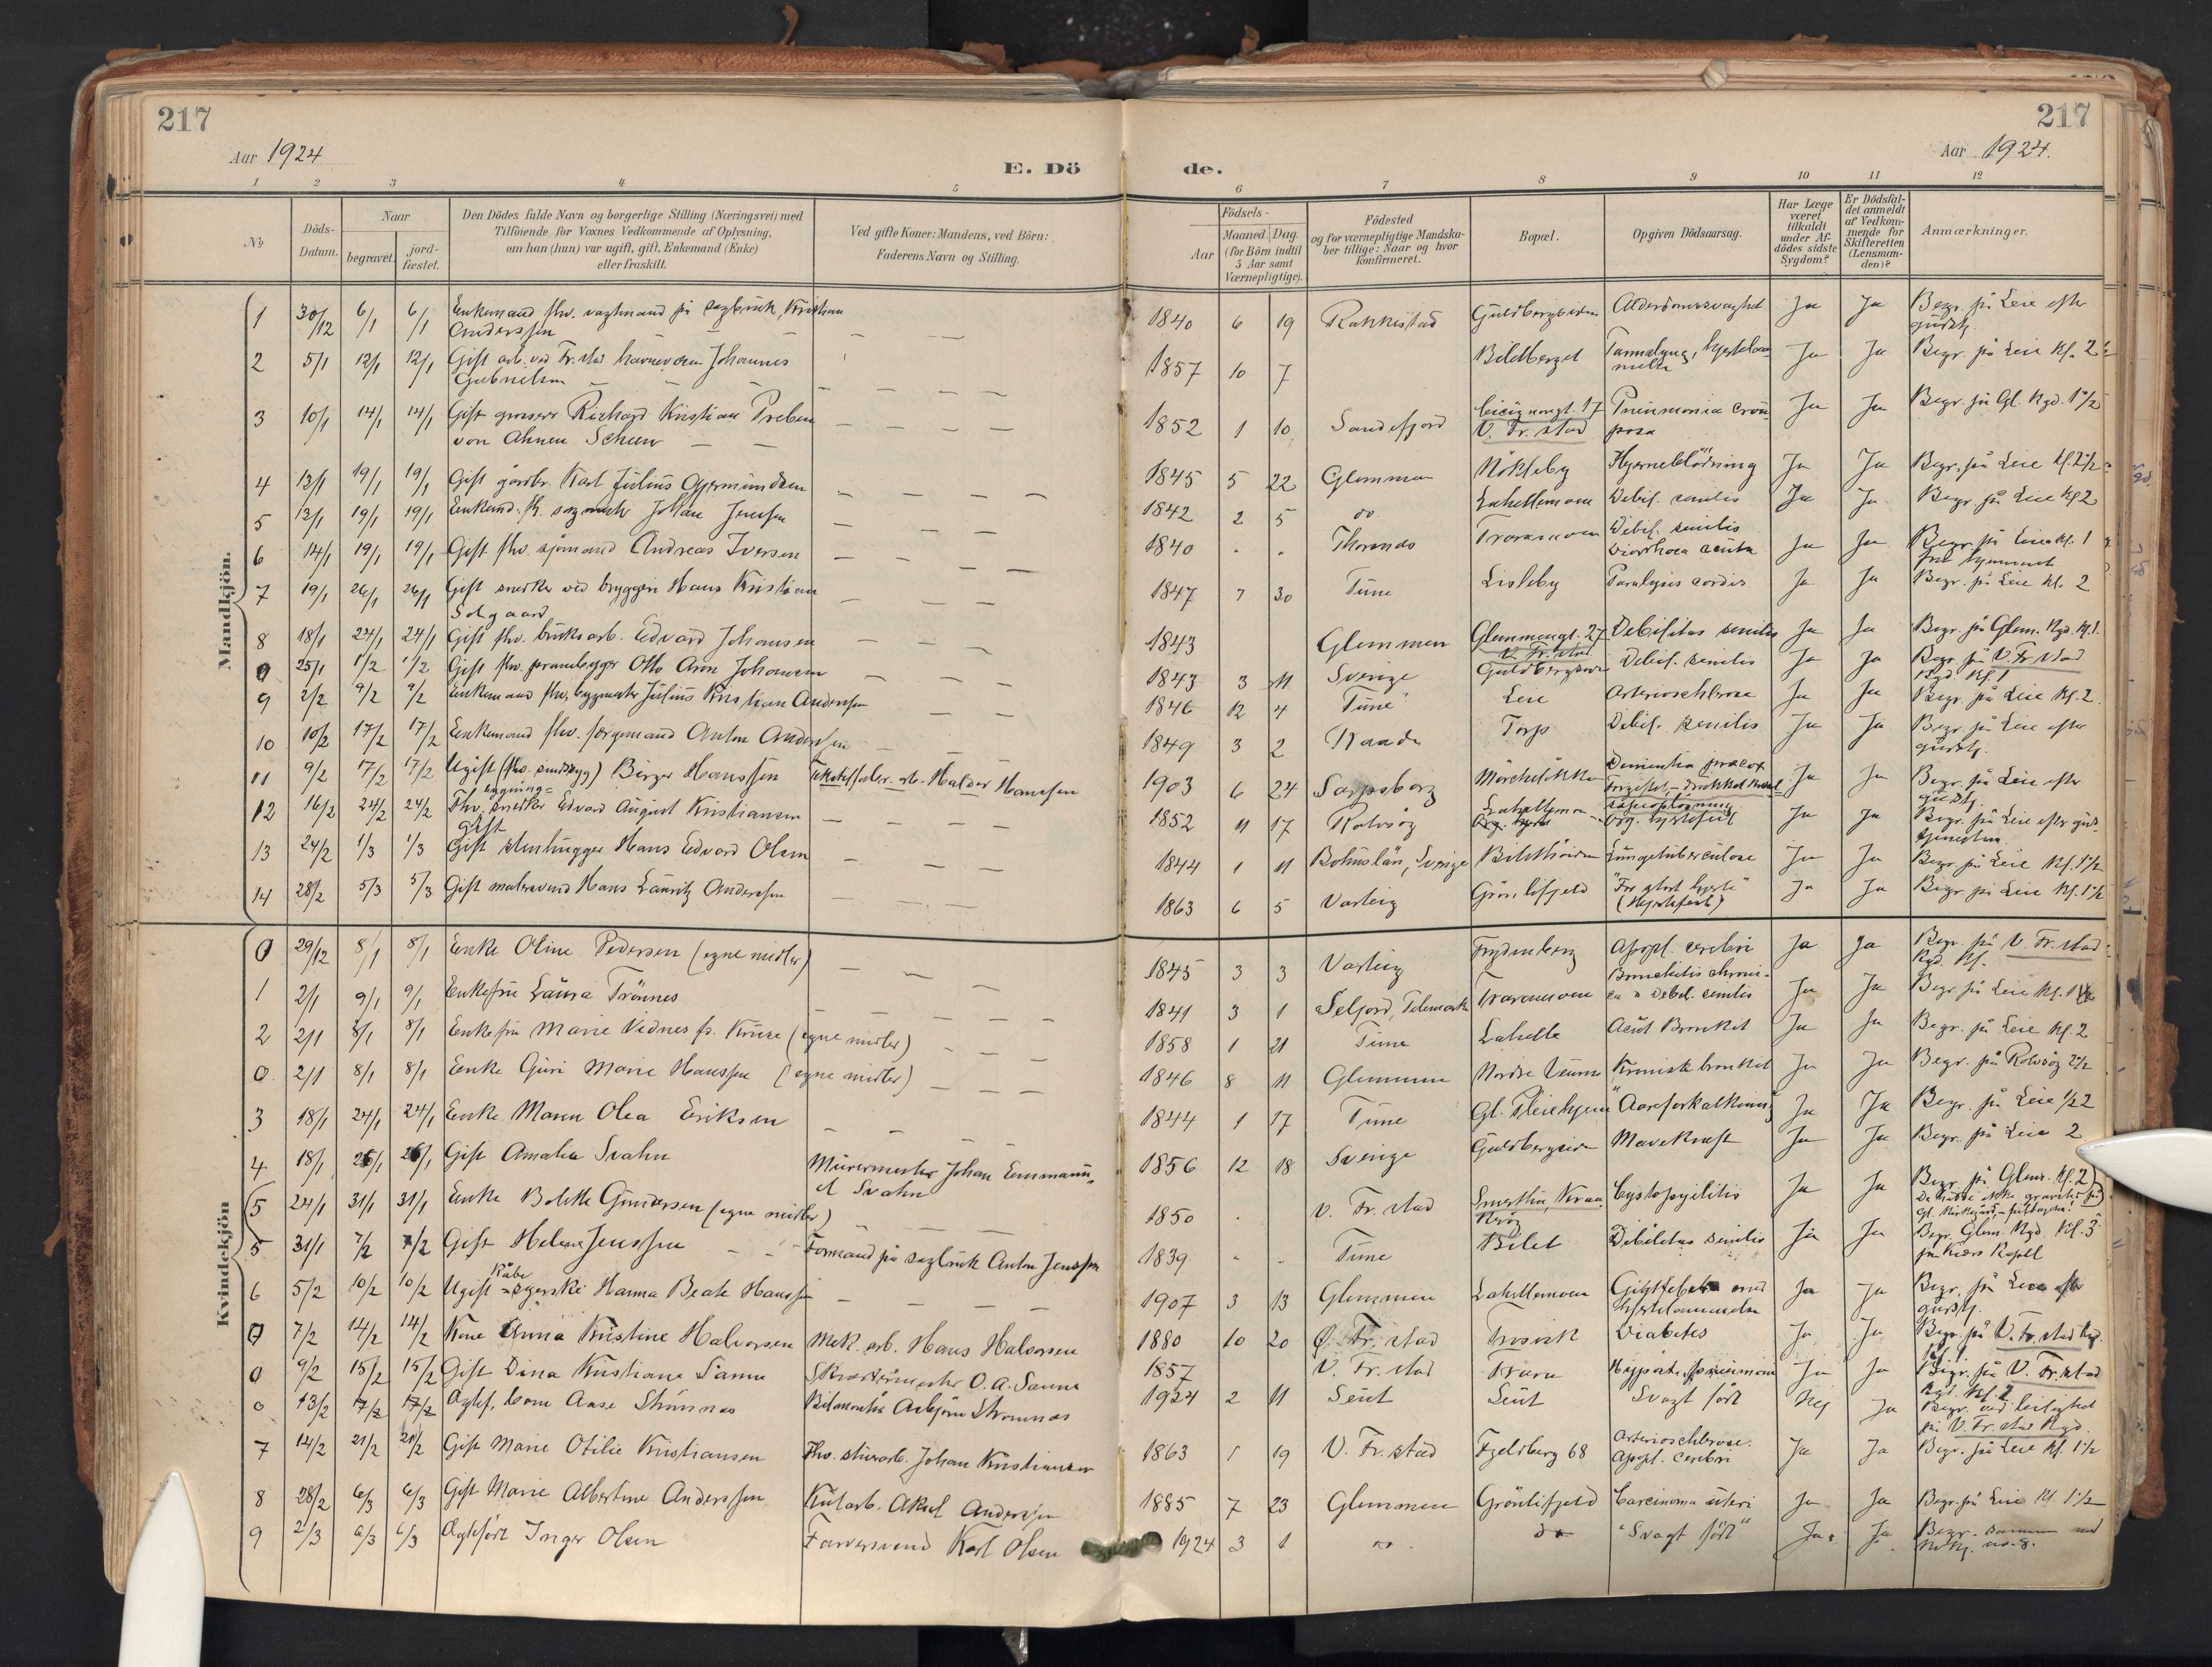 217
217
Aar 1924
Aar 1924.
E. Dö
de.
1 2 3 4 5 6 7 8 9 10 11 12
№
Döds-
Datum.
Naar
begravet.
jord-
fæstet.
Den Dödes fulde Navn og borgerlige Stilling (Næringsvei) med
Tilföiende for Voxnes Vedkommende af Oplysning,
om han (hun) var ugift, gift, Enkemand (Enke)
eller fraskilt.
Ved gifte Koner: Mandens, ved Börn:
Faderens Navn og Stilling.
Födsels-
Aar
Maaned. Dag.
(for Börn indtil
5 Aar samt
Værnepligtige).
Födested
og for værnepligtige Mandska-
ber tillige: Naar og hvor
konfirmeret.
Bopæl.
Opgiven Dödsaarsag.
Har Læge
været
tilkaldt
under Af-
dödes sidste
Sygdom?
Er Dödsfal-
det anmeldt
af Vedkom-
mende for
Skifteretten
(Lensman-
den)?
Anmærkninger.
Mandkjön.
1 30/12 6/1 6/1 Enkemand fhv. vagtmand på sagbruk, Kristian
Anderssen
1840 6 19 Rakkestad Guldbergsiden Alderdomssvaghet Ja Ja Begr. på Leie efter
gudstj.
2 5/1 12/1 12/1 Gift arb. ved Fr.stad havnevæsen Johannes
Gabrielsen
1857 10 7 Bildtberget Ja Ja Begr. på Leie Kl. 2
3 10/1 14/1 14/1 Gift grosserer Richard Kristian Preben
von Ahnen
1852 1 10 Sandefjord
V. Fr. stad Pneumonia crou
posa Ja Ja Begr. på Gl. Kgd. 1 1/2
4 13/1 19/1 19/1 Gift gårdbr. Karl Julius Gjermundsen 1845 5 22 Glemmen Nökleby Hjerneblödning Ja Ja Begr. på Leie Kl. 2 1/2
5 13/1 19/1 19/1 Enkemd. fh. sagmester Johan Jensen 1842 2 5 do. Lahellemoen Debil. senilis Ja Ja Begr på Leie Kl 2
6 14/1 19/1 19/1 Gift fhv. sjömand Andreas Iversen 1840 Trosvik Debil. senilis
Diarrhoea acuta Ja Ja Begr. på Leie Kl. 1
7 19/1 26/1 26/1 Gift snedker ved bryggeri Hans Kristian
Solgaard
1847 7 30 Tune Lisleby Paralysis cordis Ja Ja Begr. på Leie Kl. 2
8 18/1 24/1 24/1 Gift fhv. bruksarb. Edvard Johansen 1843 Glemmen Glemmengt. 27
V. Fr. stad Debilitas senilis Ja Ja Begr. på Glem. Kgd. Kl. 1.
0 25/1 1/2 1/2 Gift fhv. prambygger Otto Aron Johansen 1843 3 11 Sverige Guldbergsiden Debil. senilis Ja Ja Begr. på V. Fr. stad
Kgd. Kl. 1
9 2/2 9/2 9/2 Enkemand fhv. bygmester Julius Kristian Anderssen 1846 12 4 Tune Leie Arteriosclerose Ja Ja Begr. på Leie Kl. 2.
10 10/2 17/2 17/2 Enkemand fhv. færgemand Anton Anderssen 1849 3 2 Raade Torp Debil. senilis Ja Ja Begr på Leie efter
gudstj.
11 9/2 17/2 17/2 Ugift (fhv. sindssyg) Birger Hanssen Haldor Hanssen 1903 6 24 Sarpsborg Mörkeløkka Dementia præcox Ja Ja Begr. på Leie efter
gudstj.
12 16/2 24/2 24/2 Fhv. snedker Edvard August Kristiansen
gift
1852 11 17 Rolvsöy Org. hjertefeil Ja Ja Begr. på Leie efter guds-
tjenesten.
13 24/2 1/3 1/3 Gift stenhugger Hans Edvard Olsen 1844 1 11 Bohuslän, Sverige Lungetuberculose Ja Ja Begr. på Leie Kl. 1 1/2
14 28/2 5/3 5/3 Gift malersvend Hans Lauritz Anderssen 1863 6 5 Varteig Grönlifjeld (Hjertefeil) Ja Ja Begr. på Leie Kl. 1 1/2
Kvindekjön
0 29/12 8/1 8/1 Enke Oline Pedersen (egne midler) 1845 3 3 Varteig Frydenberg Apopl. cerebri Ja Ja Begr. på V. Fr. stad
Kgd. Kl.
1 2/1 9/1 9/1 Enkefru Laura Trönnes 1841 3 1 Seljord, Telemark Bronchitis chroni-
ca + Debil. senilis Ja Ja Begr. på Leie Kl. 1
2 2/1 8/1 8/1 Enkefru Marie Vidnes f. Kruse (egne midler) 1858 1 21 Tune Lahelle Acut Bronkit Ja Ja Begr. på Leie Kl. 2
0. 2/1 8/1 8/1 Enke Guri Marie Hanssen (egne midler) 1846 8 11 Glemmen Nordre Veum Kronisk bronkit Ja Ja Begr. på Rolvsöy 2 1/2
3 18/1 24/1 24/1 Enke Maren Olea Eriksen 1844 1 17 Tune Gl. Pleiehjem Aareforkalkning Ja Ja Begr. på Leie 1/2 2
4 18/1 26/1 26/1 Gift Amalie Svahn Murermester Johan Emmanu-
el Svahn 1856 12 18 Sverige Guldbergsiden Mavekræft Ja Ja Begr. på Leie 2
(5 24/1 31/1 31/1 Enke Bolette Gundersen (egne midler) 1850 V. Fr. stad Cystopyilitis Ja Ja Begr. på Glem. Kl. 2)
5 31/1 7/2 7/2 Gift Helene Jenssen Formand på sagbruk Anton Jenssen 1839 Tune Bilet Debilitas senilis Ja Ja Begr. Glem. Kgd. Kl. 3
6 5/2 10/2 10/2 Ugift Kåbe
syerske Hanna Beate Hanssen 1907 3 13 Glemmen Lahellemoen Gigtfeber med Ja Ja Begr. på Leie
gudstj.
0 7/2 14/2 14/2 Kone Anna Kristine Halvorsen Mek. arb. Hans Halvorsen 1880 10 20 Ö. Fr. stad Trosvik Diabetes Ja Ja Begr. på V. Fr. stad Kgd.
Kl. 1
0 9/2 15/2 15/2 Gift Dina Kristiane Sanne Skræddermester O. A. Sanne 1857 V. Fr. stad Trara Ja Ja Begr. på V. Fr. stad
Kgd. Kl. 2
0 13/2 17/2 17/2 Ægtef. barn Aase Strömnes Asbjörn Strömnes 1924 2 11 Seut Seut Svagt födt Nej Ja Begr. ved leilighet
på V. Fr. stad Kgd.
7 14/2 21/2 21/2 Gift Marie Otilie Kristiansen Fhv. stuerarb. Johan Kristiansen 1863 1 19 V. Fr. stad Fjeldberg 68 Arteriosclerose.
Apopl. cerebri Ja Ja Begr. på Leie Kl. 1 1/2
8 28/2 6/3 6/3 Gift Marie Albertine Anderssen Kularb. Aksel Anderssen 1885 7 23 Glemmen Grönlifjeld Carcinoma uteri Ja Ja Begr. på Leie Kl. 1 1/2
9 2/3 6/3 6/3 Ægtefödt Inger Olsen Farversvend Karl Olsen 1924 3 1 do. do "Svagt födt" Ja Ja Begr. sammen med